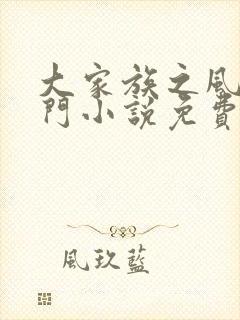 大家族之風
門小說免費
風玖藍